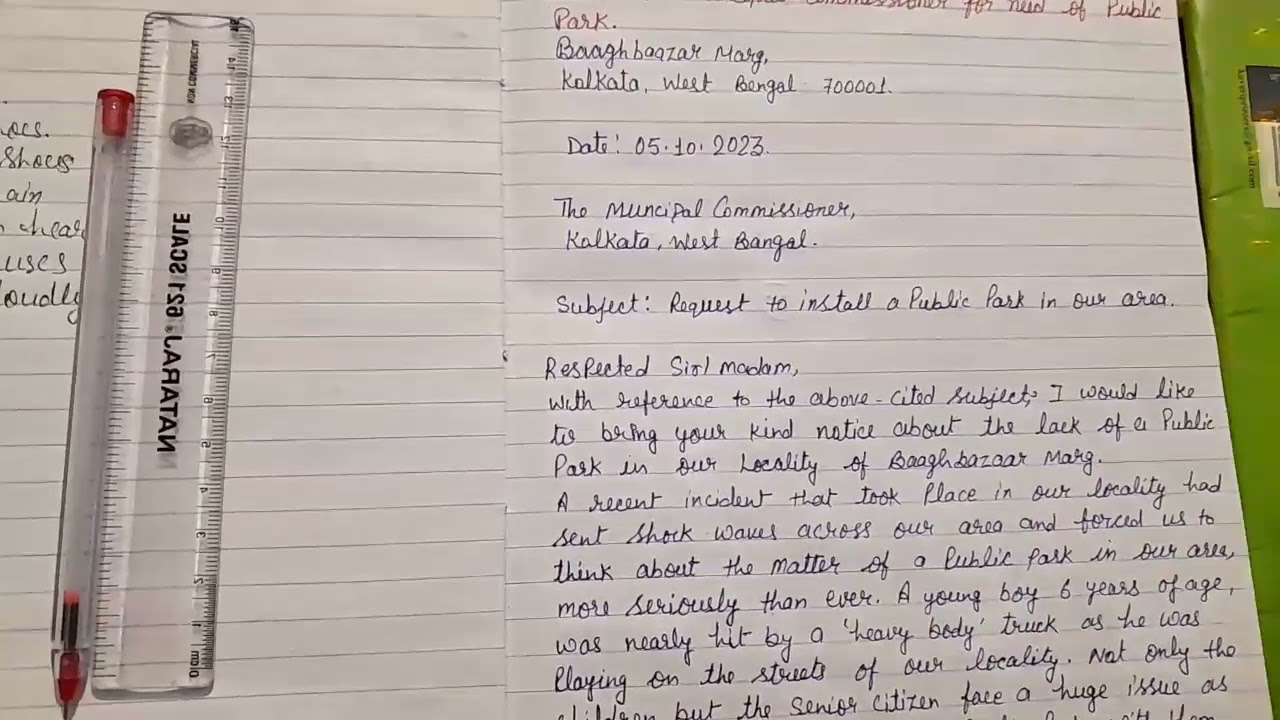 ocs.
Shoes
ain
chear
uses
loudly
NATARAJ 621 SCALE
Commissioner for need of Public
Park.
Baaghbaazar Marg,
Kolkata, West Bengal 700001.
Date: 05.10.2023.
The Muncipal Commissioner,
Kolkata, West Bangal.
Subject: Request to install a Public Park in our area.
Respected Sir/madam,
With reference to the above-cited subject, I would like
to bring your kind notice about the lack of a Public
Park in our Locality of Baaghbazaar Marg.
A recent incident that took Place in our locality had
sent shock waves across our area and forced us to
think about the matter of a Public park in our area,
more seriously than ever. A young boy 6 years of age,
was nearly hit by a 'heavy body' truck as he was
Playing on the streets of our locality. Not only the
children but the senior citizen face a huge issue as